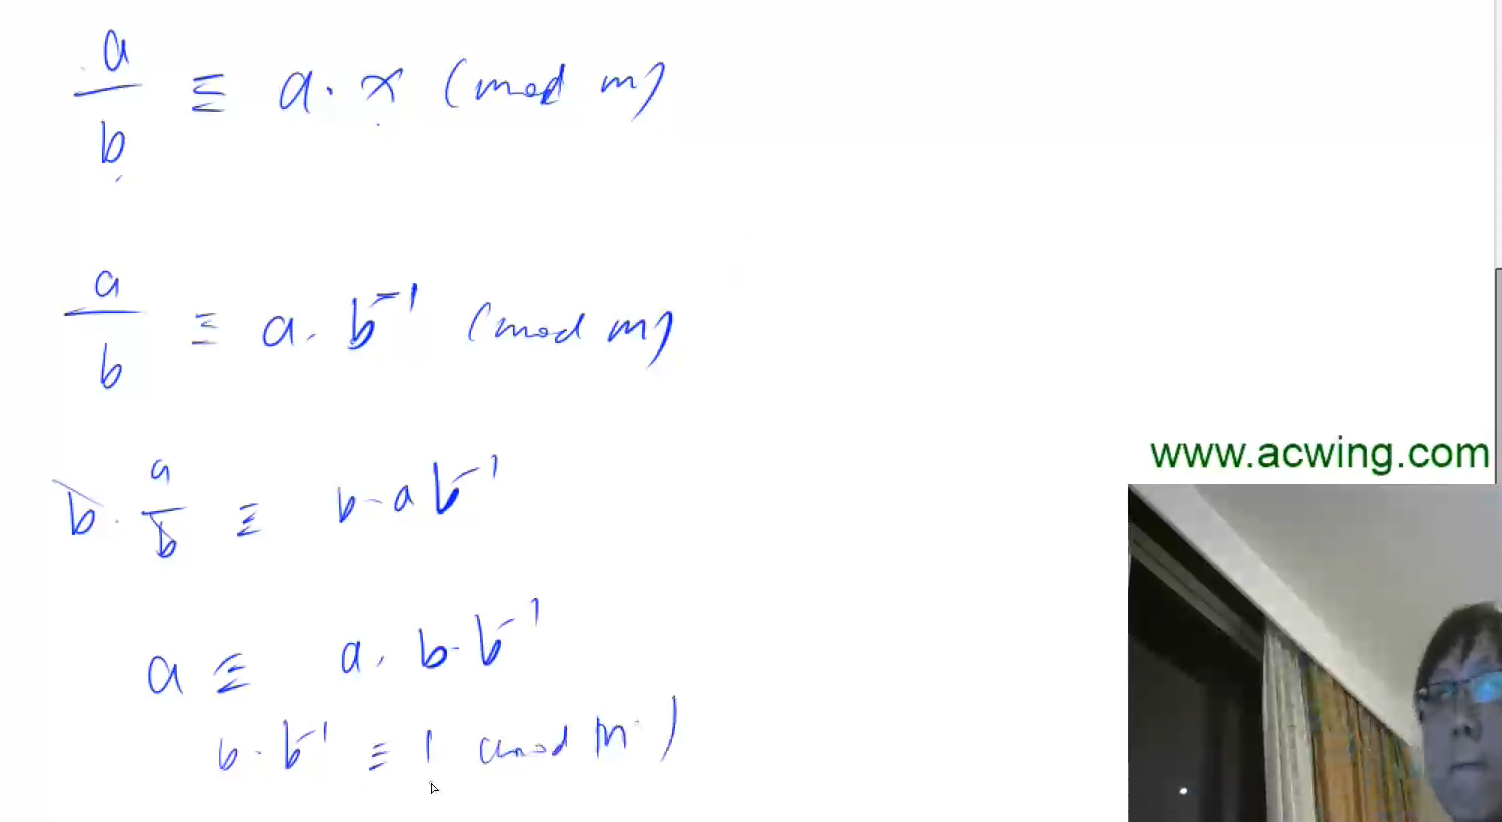 a/b ≡ a · x (mod m)
a/b ≡ a · b⁻¹ (mod m)
b · a/b ≡ b · a b⁻¹
a ≡ a · b · b⁻¹
b · b⁻¹ ≡ 1 (mod m)
www.acwing.com